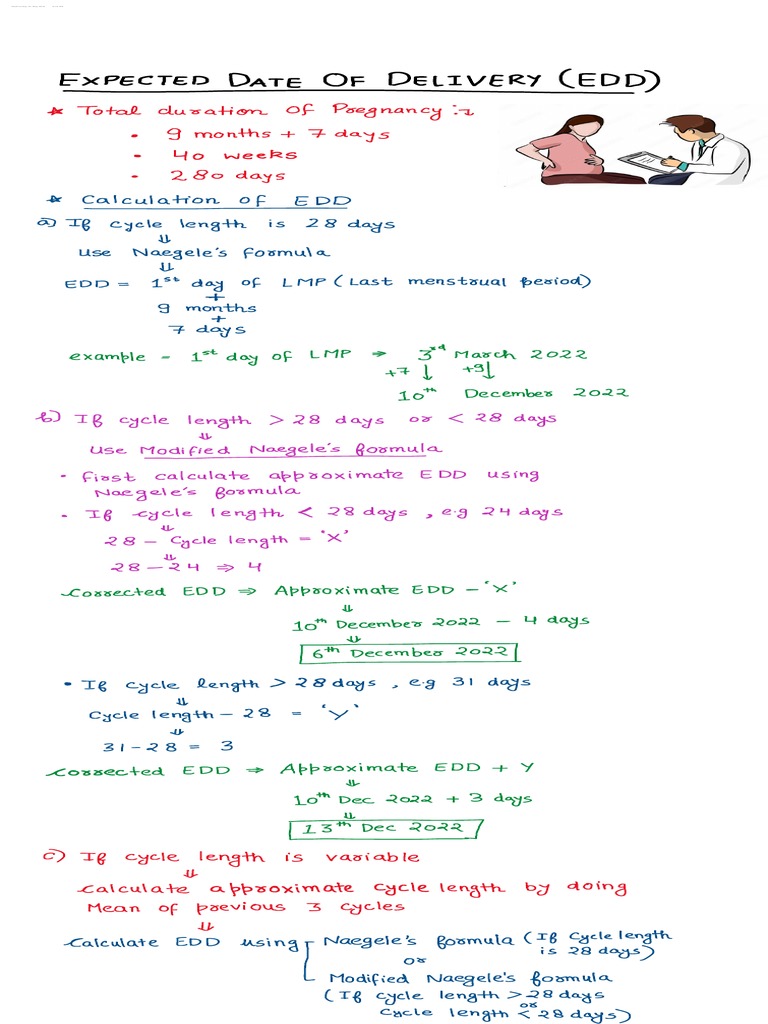 EXPECTED DATE OF DELIVERY (EDD)
* Total duration of Pregnancy :-
• 9 months + 7 days
• 40 weeks
• 280 days
* Calculation of EDD
a) If cycle length is 28 days
⇓
use Naegele's formula
⇓
EDD = 1st day of LMP (Last menstrual period)
+
9 months
+
7 days
example - 1st day of LMP → 3rd March 2022
+7 ↓ +9↓
10th December 2022
b) If cycle length > 28 days or < 28 days
⇓
use Modified Naegele's formula
• first calculate approximate EDD using
Naegele's formula
• If cycle length < 28 days , e.g 24 days
⇓
28 - Cycle length = 'X'
⇓
28 - 24 ⇒ 4
Corrected EDD ⇒ Approximate EDD - 'X'
⇓
10th December 2022 - 4 days
⇓
6th December 2022
• If cycle length > 28 days , e.g 31 days
⇓
Cycle length - 28 = 'Y'
⇓
31-28 = 3
Corrected EDD ⇒ Approximate EDD + Y
⇓
10th Dec 2022 + 3 days
⇓
13th Dec 2022
c) If cycle length is variable
⇓
Calculate approximate cycle length by doing
Mean of previous 3 cycles
⇓
Calculate EDD using Naegele's formula (If Cycle length
is 28 days)
or
Modified Naegele's formula
(If cycle length > 28 days
or
Cycle length < 28 days)